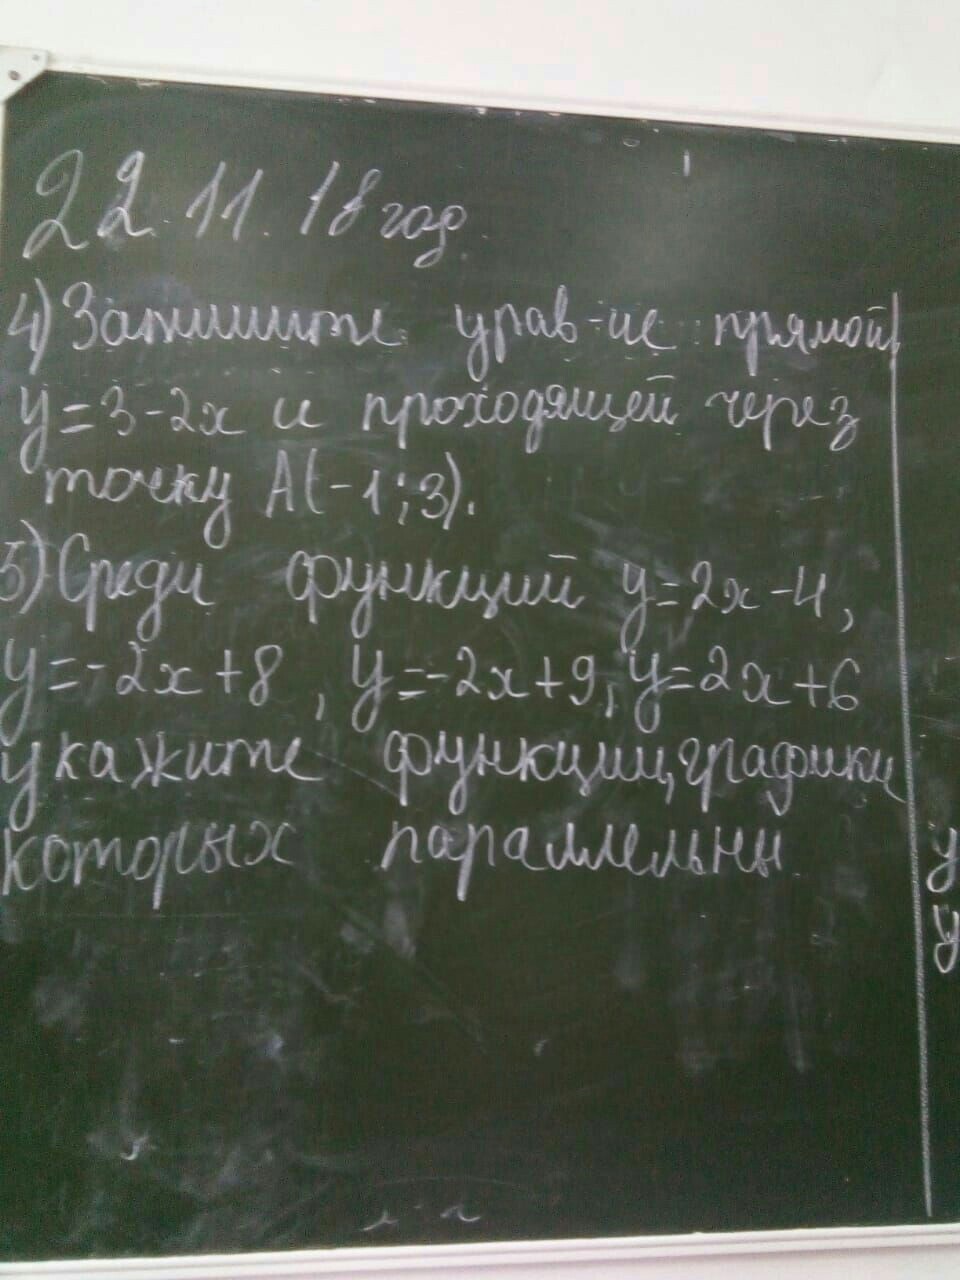 22.11.18 год.
4) Запишите урав-ие прямой,
y=3-2x и проходящей через
точку А(-1;3).
5) Среди функций y=2x-4,
y=-2x+8, y=-2x+9, y=2x+6
укажите функции, графики
которых параллельны
y
y